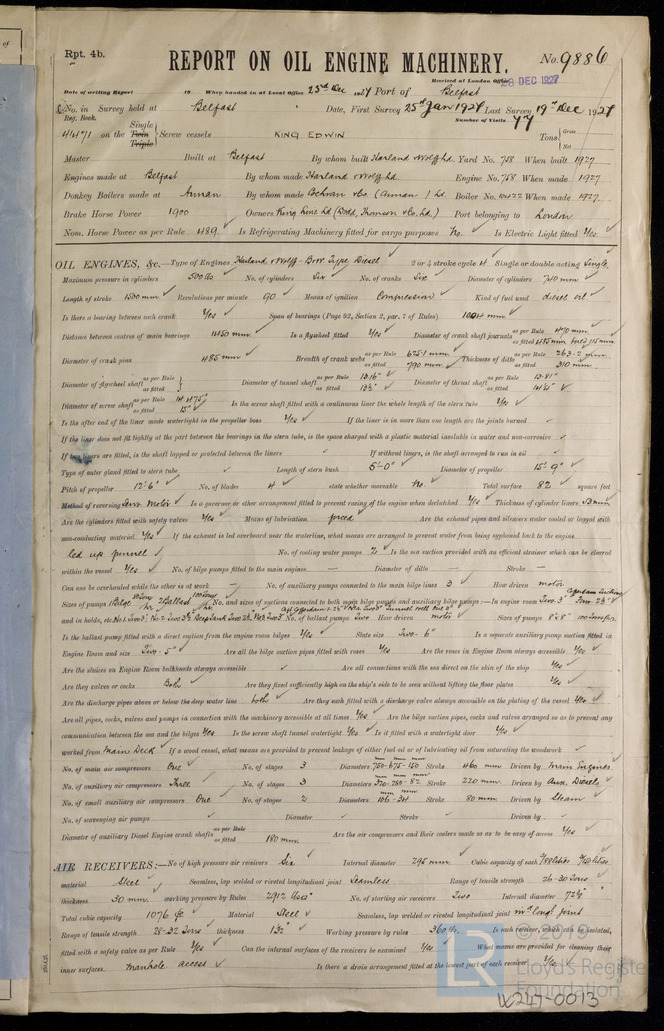 of
Rpt. 4b.
REPORT ON OIL ENGINE MACHINERY.
No. 9886
Received at London Office 28 DEC 1927
Date of writing Report 19 When handed in at Local Office 23rd Dec 1927 Port of Belfast
No. in Survey held at Belfast Date, First Survey 25th Jan 1927 Last Survey 19th Dec 1927
Reg. Book. Number of Visits 77
44471 on the Single Twin Triple Screw vessels KING EDWIN Tons Gross Net
Master Built at Belfast By whom built Harland & Wolff Ld. Yard No. 758 When built 1927
Engines made at Belfast By whom made Harland & Wolff Ld. Engine No. 758 When made 1927
Donkey Boilers made at Annan By whom made Cochran & Co. (Annan) Ld. Boiler No. 10422 When made 1927
Brake Horse Power 1900 Owners King Line Ld (Dodd, Thomson & Co. Ld.) Port belonging to London
Nom. Horse Power as per Rule 489 Is Refrigerating Machinery fitted for cargo purposes No. Is Electric Light fitted Yes
OIL ENGINES, &c.—Type of Engines Harland & Wolff - Bur. Type Diesel 2 or 4 stroke cycle 4 Single or double acting Single
Maximum pressure in cylinders 500 lbs No. of cylinders Six No. of cranks Six Diameter of cylinders 740 mm
Length of stroke 1500 mm Revolutions per minute 90 Means of ignition Compression Kind of fuel used diesel oil
Is there a bearing between each crank Yes Span of bearings (Page 92, Section 2, par. 7 of Rules) 1004 mm
Distance between centres of main bearings 1450 mm Is a flywheel fitted Yes Diameter of crank journals as per Rule 470 mm as fitted 485 mm bored 115 mm
Diameter of crank pins 485 mm Breadth of crank webs as per Rule 625.1 mm as fitted 790 mm Thickness of ditto as per Rule 263.2 mm as fitted 310 mm
Diameter of flywheel shaft as per Rule as fitted Diameter of tunnel shaft as per Rule 13.16" as fitted 13½" Diameter of thrust shaft as per Rule 13.81" as fitted 14¼"
Diameter of screw shaft as per Rule 14.475" as fitted 15" Is the screw shaft fitted with a continuous liner the whole length of the stern tube Yes
Is the after end of the liner made watertight in the propeller boss Yes If the liner is in more than one length are the joints burned
If the liner does not fit tightly at the part between the bearings in the stern tube, is the space charged with a plastic material insoluble in water and non-corrosive
If two liners are fitted, is the shaft lapped or protected between the liners If without liners, is the shaft arranged to run in oil
Type of outer gland fitted to stern tube Length of stern bush 5'-0" Diameter of propeller 15'-9"
Pitch of propeller 12'-6" No. of blades 4 state whether moveable No. Total surface 82 square feet
Method of reversing Servo Motor Is a governor or other arrangement fitted to prevent racing of the engine when declutched Yes Thickness of cylinder liners 53 mm
Are the cylinders fitted with safety valves Yes Means of lubrication forced Are the exhaust pipes and silencers water cooled or lagged with
non-conducting material Yes If the exhaust is led overboard near the waterline, what means are arranged to prevent water from being syphoned back to the engine
led up funnel No. of cooling water pumps 2 Is the sea suction provided with an efficient strainer which can be cleared
within the vessel Yes No. of bilge pumps fitted to the main engines — Diameter of ditto — Stroke —
Can one be overhauled while the other is at work — No. of auxiliary pumps connected to the main bilge lines 3 How driven motor
Sizes of pumps No. and sizes of suctions connected to both main bilge pumps and auxiliary bilge pumps:—In engine room Two-3"
and in holds, etc. No. of ballast pumps Two How driven motor Sizes of pumps 8"x8"
Is the ballast pump fitted with a direct suction from the engine room bilges Yes State size Two-6" Is a separate auxiliary pump suction fitted in
Engine Room and size Two-5" Are all the bilge suction pipes fitted with roses Yes Are the roses in Engine Room always accessible Yes
Are the sluices on Engine Room bulkheads always accessible Are all connections with the sea direct on the skin of the ship Yes
Are they valves or cocks Both Are they fixed sufficiently high on the ship's side to be seen without lifting the floor plates Yes
Are the discharge pipes above or below the deep water line both Are they each fitted with a discharge valve always accessible on the plating of the vessel Yes
Are all pipes, cocks, valves and pumps in connection with the machinery accessible at all times Yes Are the bilge suction pipes, cocks and valves arranged so as to prevent any
communication between the sea and the bilges Yes Is the screw shaft tunnel watertight Yes Is it fitted with a watertight door Yes
worked from Main Deck If a wood vessel, what means are provided to prevent leakage of either fuel oil or of lubricating oil from saturating the woodwork
No. of main air compressors One No. of stages 3 Diameters 750-675-150 mm Stroke 460 mm Driven by Main Engines
No. of auxiliary air compressors Three No. of stages 3 Diameters Stroke 220 mm. Driven by Aux. Diesels
No. of small auxiliary air compressors One No. of stages 2 Diameters 106-34 mm Stroke 80 mm Driven by Steam
No. of scavenging air pumps Diameter Stroke Driven by
Diameter of auxiliary Diesel Engine crank shafts as per Rule as fitted 180 mm. Are the air compressors and their coolers made so as to be easy of access Yes
AIR RECEIVERS:—No. of high pressure air receivers Six Internal diameter 295 mm Cubic capacity of each
material Steel Seamless, lap welded or riveted longitudinal joint Seamless Range of tensile strength 26-30 Tons
thickness 30 mm. working pressure by Rules 2912 lbs No. of starting air receivers Two Internal diameter 72½"
Total cubic capacity 1076 Material Steel Seamless, lap welded or riveted longitudinal joint longl joint
Range of tensile strength 28-32 Tons thickness working pressure by rules 360 lbs. Is each receiver, which can be isolated,
fitted with a safety valve as per Rule Yes Can the internal surfaces of the receivers be examined Yes What means are provided for cleaning their
inner surfaces manhole access Is there a drain arrangement fitted at the lowest part of each receiver Yes
© 2019
LR
Lloyd's Register
Foundation
W247-0013